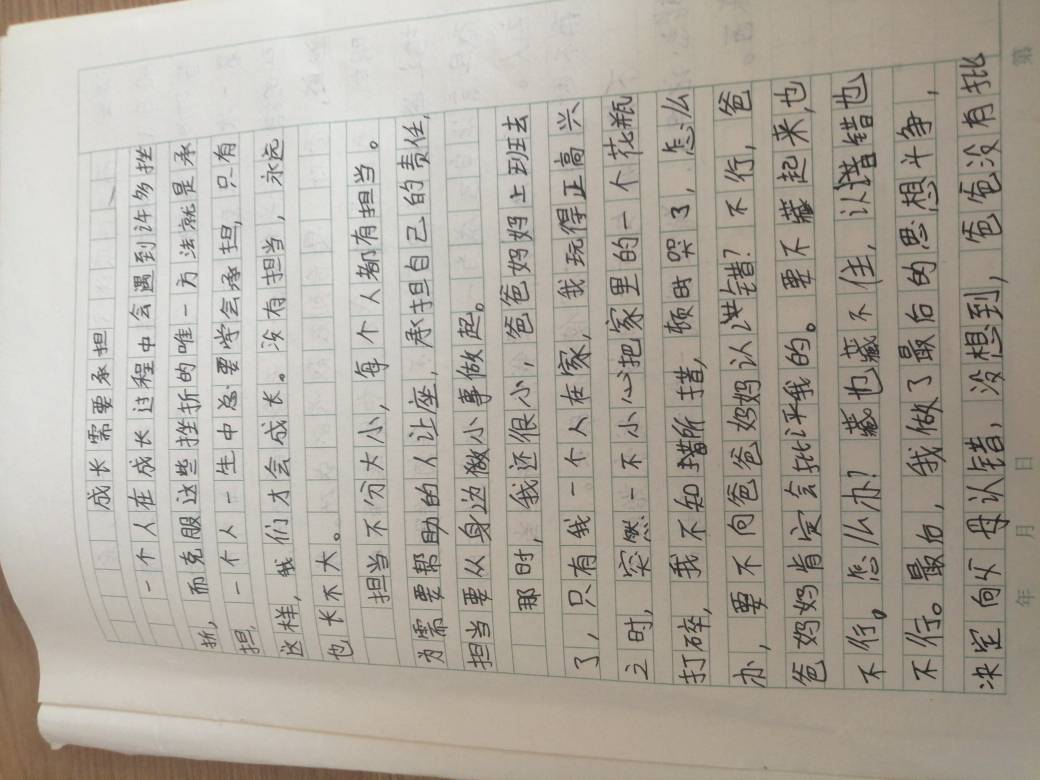 成长需要承担
一个人在成长过程中会遇到许多挫
折,而克服这些挫折的唯一方法就是承
担,一个人一生中总要学会承担,只有
这样,我们才会成长。没有担当,永远
也长不大。
担当不分大小,每个人都有担当。
为需要帮助的人让座,承担自己的责任,
担当要从身边做小事做起。
那时,我还很小,爸爸妈妈上班去
了,只有我一个人在家,我玩得正高兴
之时,突然一不小心把家里的一个花瓶
打碎,我不知措所措,顿时哭了,怎么
办,要不向爸爸妈妈认错?不行,爸
爸妈妈肯定会批评我的。要不藏起来,也
不行。怎么办?藏也藏不住,认错也
不行。最后,我做了最后的思想斗争,
决定向父母认错,没想到,爸爸没有批
年 月 日
第